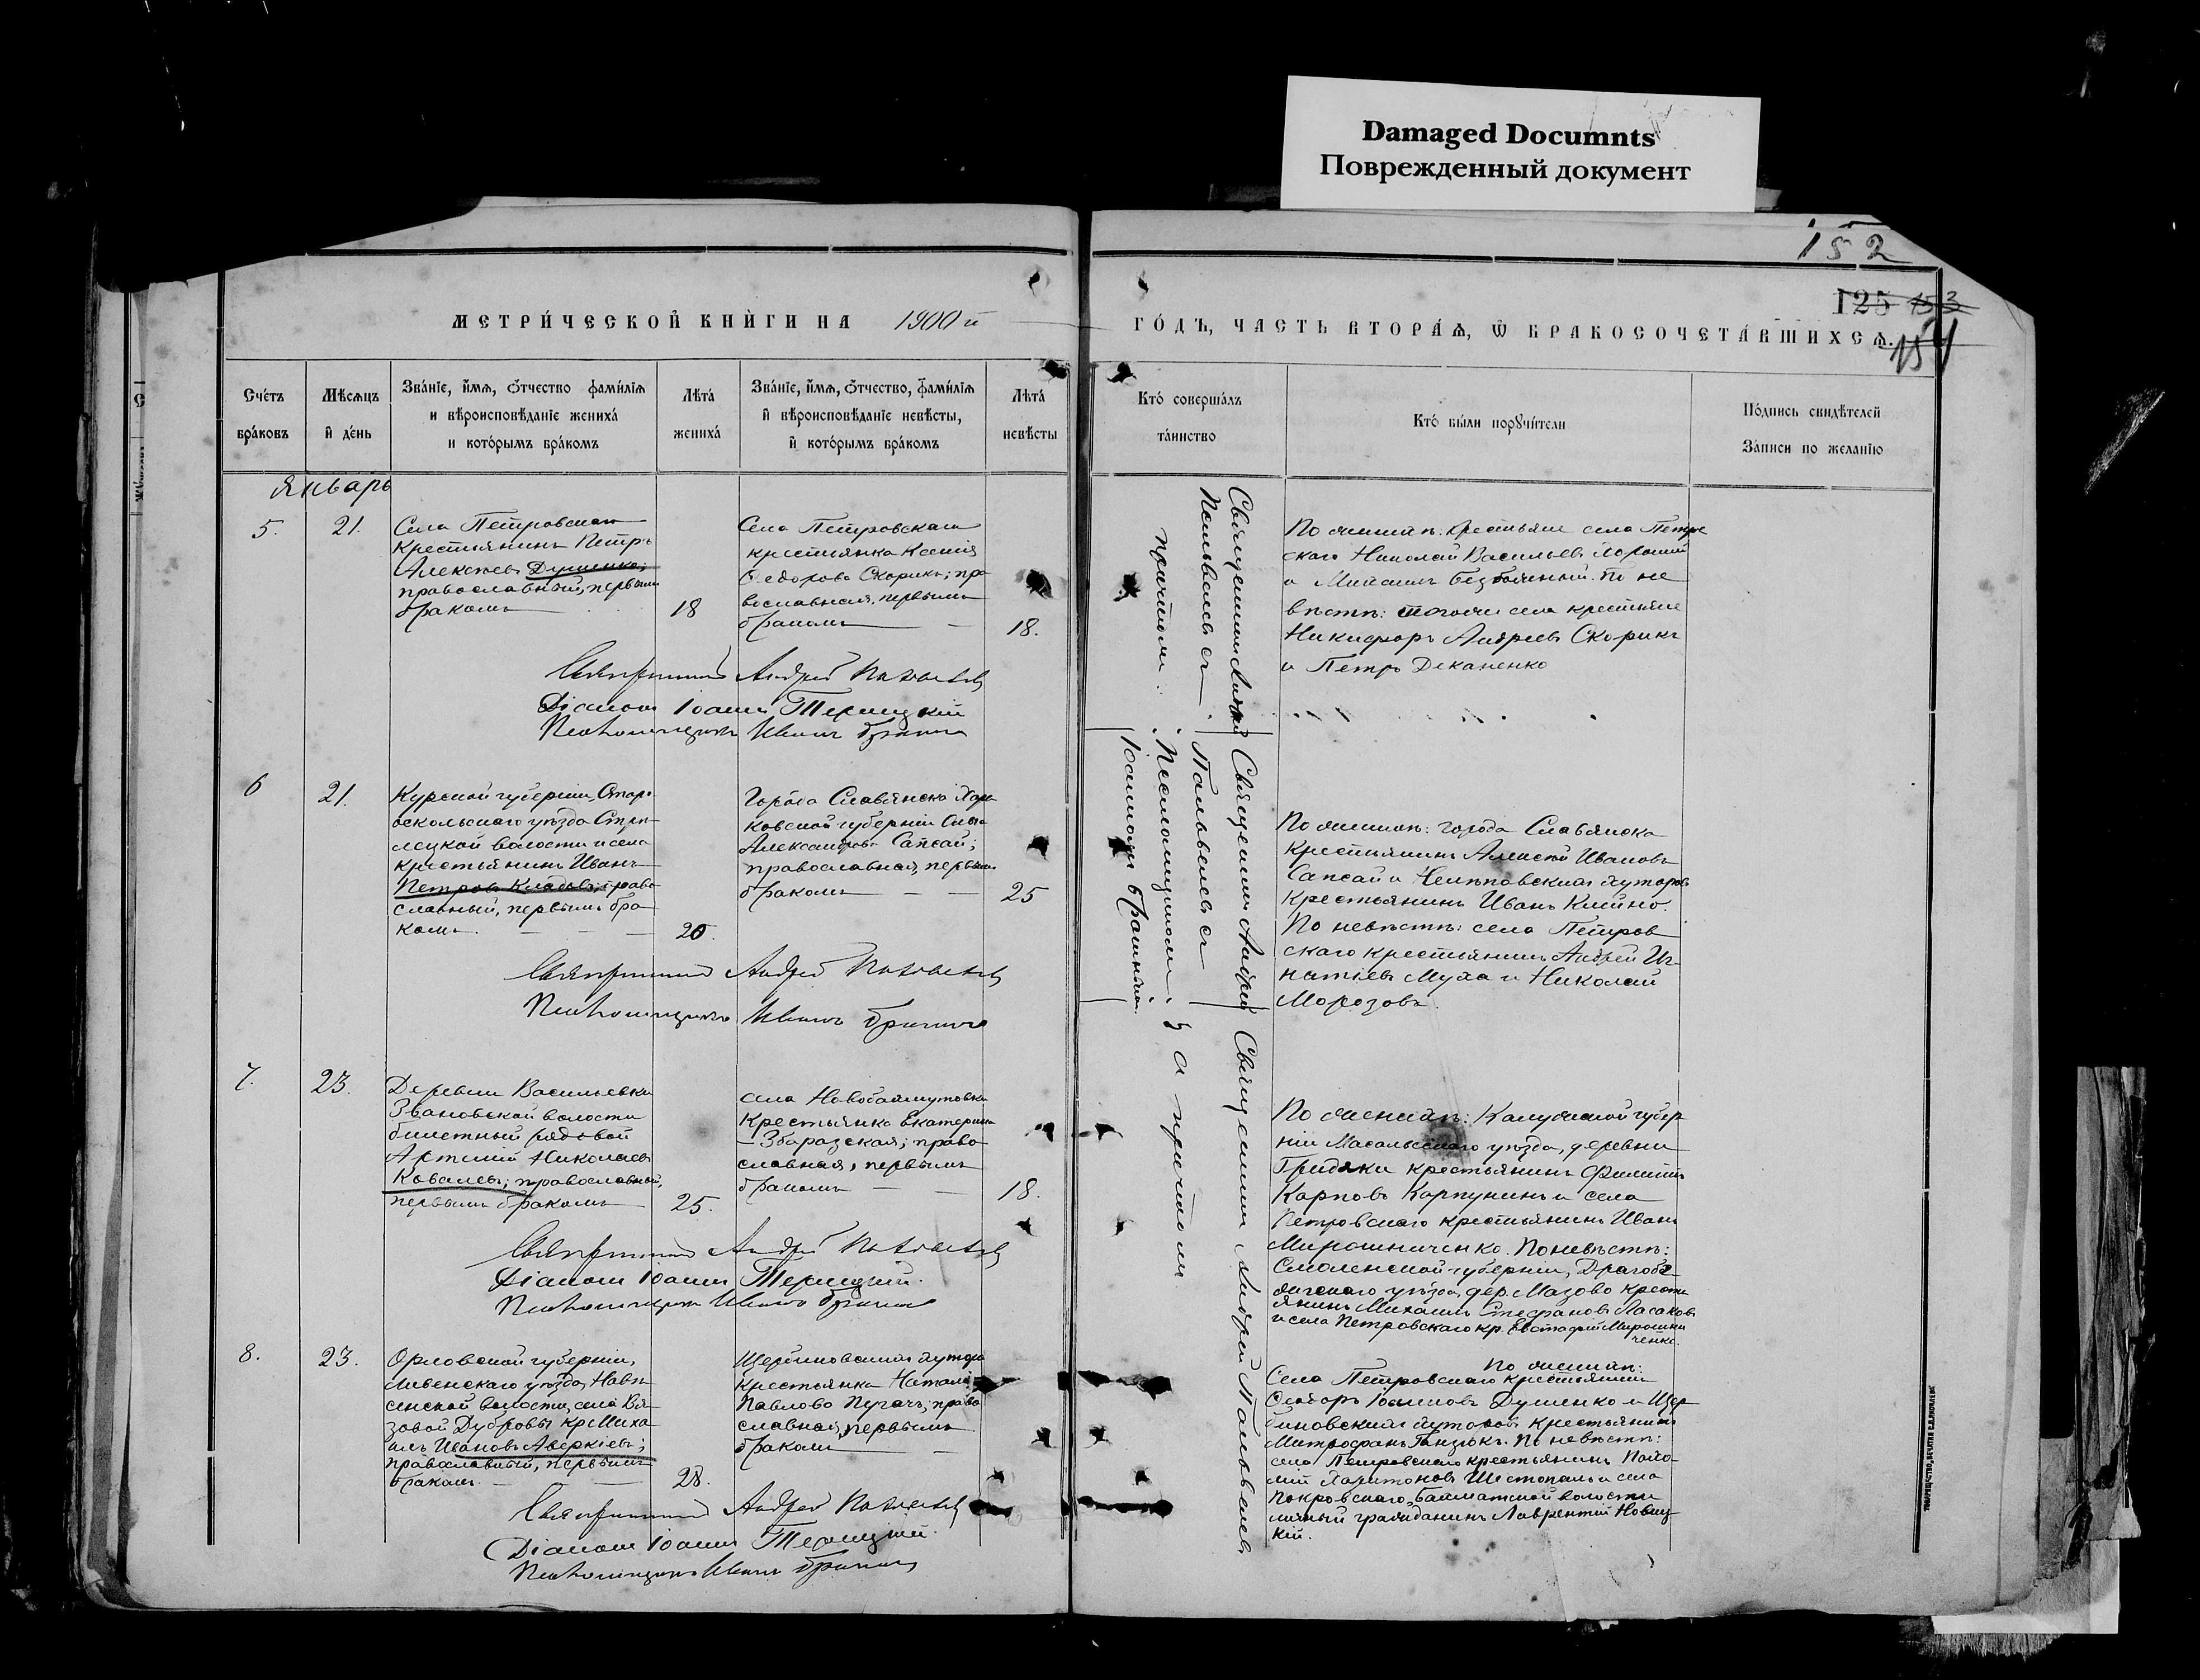 Damaged Documnts
Поврежденный документ
152
125 153
151
МЕТРИ́ЧЕСКОЙ КНИ́ГИ НА 1900 й
ГО́ДЪ, ЧАСТЬ ВТОРА́Ѧ, Ѽ БРАКОСОЧЕТА́ВШИХСѦ.
Сче́тъ бра́ковъ
Мѣ́сѧцъ и҆ де́нь
Зва́нїе, и҆́мѧ, ѻ҆́тчество фамилїя и вѣроисповѣ́данїе жениха́ и кото́рымъ бра́комъ
Лѣта́ жениха́
Зва́нїе, и҆́мѧ, ѻ҆́тчество, фамилїя и҆ вѣроисповѣ́данїе невѣ́сты, и҆ кото́рымъ бра́комъ
Лѣта́ невѣ́сты
Кто́ соверша́лъ та́инство
Кто́ бы́ли порꙋчи́тели
По́дпись свидѣ́телей За́писи по жела́нїю
Январь
5. 21.
Села Петровскаго
крестьянинъ Петръ
Алексѣевъ Душенко;
православный, первымъ
бракомъ
18
Села Петровскаго
крестьянка Ксенія
Ѳедорова Скорикъ; пра
вославная, первымъ
бракомъ
18.
Священникъ Андрей
Попльвалевъ съ
причтомъ.
По жениху: крестьяне села Петров
скаго Николай Васильевъ Хорошій
и Михаилъ Безбожный. По не
вѣстѣ: того же села крестьяне
Никифоръ Андреевъ Скорикъ
и Петръ Деканенко
Священникъ Андрей
Діаконъ Іоаннъ Терлицкій
Псаломщикъ Иванъ
6 21.
Курской губерніи, Старо
оскольскаго уѣзда Стрѣ
лецкой волости и села
крестьянинъ Иванъ
Петровъ Кладовъ; право
славный, первымъ бра
комъ.
20.
Города Славянска Харь
ковской губерніи
Александрова Сапсай;
православная, первымъ
бракомъ
25
Священникъ Андрей
съ
Псаломщикомъ
Іоанномъ
По жениху: города Славянска
крестьянинъ Алексѣй Ивановъ
Сапсай и хуторовъ
крестьянинъ Иванъ Клейно.
По невѣстѣ: села Петров
скаго крестьянинъ Андрей Иг-
натіевъ Муха и Николай
Морозовъ.
Священникъ Андрей
Псаломщикъ Иванъ
7. 23.
Деревни Васильевки
Звановской волости
билетный рядовой
Артемій Николаевъ
Ковалевъ; православный,
первымъ бракомъ
25.
села Новобахмутовки
крестьянка Екатерина
Збаразская; право
славная, первымъ
бракомъ
18.
Священникъ Андрей
съ причтомъ
По жениху: Калужской губер
ніи Масальскаго уѣзда, деревни
Гридяки крестьянинъ Филиппъ
Карповъ Карпунинъ и села
Петровскаго крестьянинъ Иванъ
Мирошниченко. По невѣстѣ:
Смоленской губерніи, Драгобу
жскаго уѣзда, дер. Мазово кресть
янинъ Михаилъ Стефановъ Ласаковъ
и села Петровскаго кр. Евстафій Мирошни
ченко.
Священникъ Андрей
Діаконъ Іоаннъ Терлицкій.
Псаломщикъ Иванъ
8. 23.
Орловской губерніи,
Ливенскаго уѣзда, Навѣ
сенской волости, села Вя
зовой Дубровы кр. Миха
илъ Ивановъ Аверкіевъ;
православный, первымъ
бракомъ.
28.
Щербиновскихъ хуторовъ
крестьянка Наталія
Павлова Пугачъ; право
славная, первымъ
бракомъ
По жениху:
Села Петровскаго крестьянинъ
Ѳеодоръ Іоакимовъ Душенко и Щер
биновскихъ хуторовъ крестьянинъ
Митрофанъ Ганзюкъ. По невѣстѣ:
села Петровскаго крестьянинъ Пахо
мій Харитоновъ Шестопалъ и села
Покровскаго, Бахматской волости
личный гражданинъ Лаврентій Новиц-
кій.
Священникъ Андрей
Діаконъ Іоаннъ Терлицкій.
Псаломщикъ Иванъ